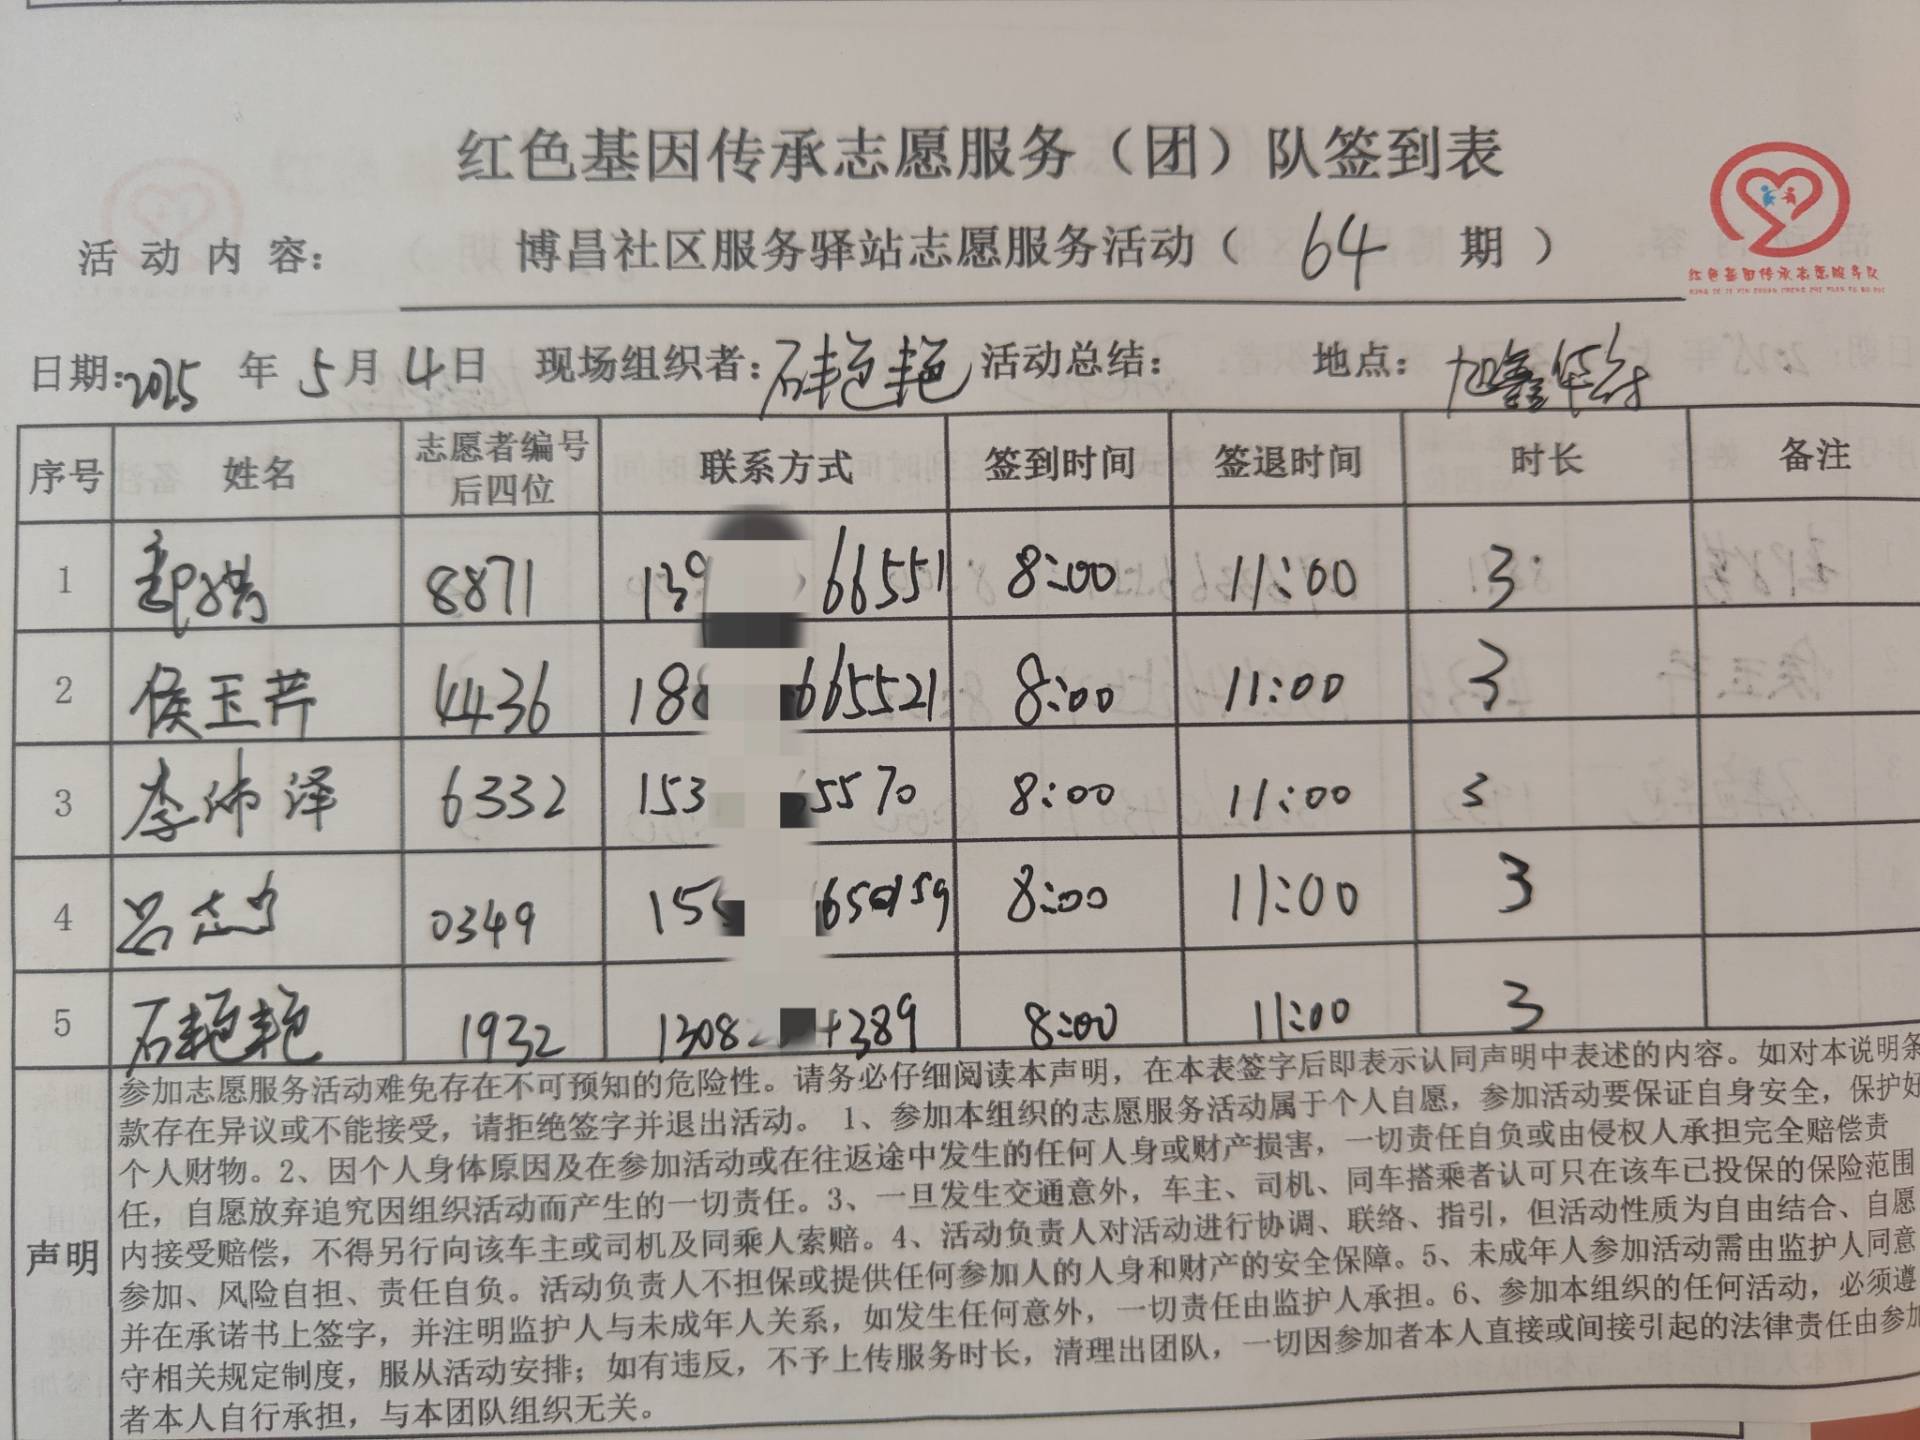 红色基因传承志愿服务（团）队签到表
活动内容： 博昌社区服务驿站志愿服务活动（ 64 期）
红色基因传承志愿服务队
日期：2025 年 5 月 4 日 现场组织者：石艳艳 活动总结： 地点：旭鑫华府
序号 姓名 志愿者编号后四位 联系方式 签到时间 签退时间 时长 备注
1 8871 139 66551 8:00 11:00 3
2 侯玉芹 4436 188 665521 8:00 11:00 3
3 李沛泽 6332 153 5570 8:00 11:00 3
4 吕志 0349 155 8:00 11:00 3
5 石艳艳 1932 1308 389 8:00 11:00 3
声明
参加志愿服务活动难免存在不可预知的危险性。请务必仔细阅读本声明，在本表签字后即表示认同声明中表述的内容。如对本说明条
款存在异议或不能接受，请拒绝签字并退出活动。 1、参加本组织的志愿服务活动属于个人自愿，参加活动要保证自身安全，保护好
个人财物。2、因个人身体原因及在参加活动或在往返途中发生的任何人身或财产损害，一切责任自负或由侵权人承担完全赔偿责
任，自愿放弃追究因组织活动而产生的一切责任。3、一旦发生交通意外，车主、司机、同车搭乘者认可只在该车已投保的保险范围
内接受赔偿，不得另行向该车主或司机及同乘人索赔。4、活动负责人对活动进行协调、联络、指引，但活动性质为自由结合、自愿
参加、风险自担、责任自负。活动负责人不担保或提供任何参加人的人身和财产的安全保障。5、未成年人参加活动需由监护人同意
并在承诺书上签字，并注明监护人与未成年人关系，如发生任何意外，一切责任由监护人承担。6、参加本组织的任何活动，必须遵
守相关规定制度，服从活动安排；如有违反，不予上传服务时长，清理出团队，一切因参加者本人直接或间接引起的法律责任由参加
者本人自行承担，与本团队组织无关。